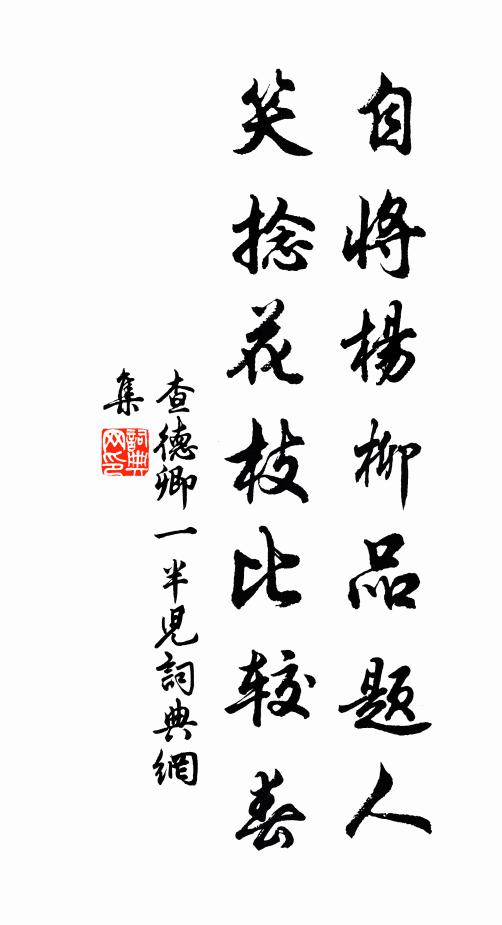 自將楊柳品題人
笑捻花枝比较春
查德卿一半兒詞典網
集
詞典
网印